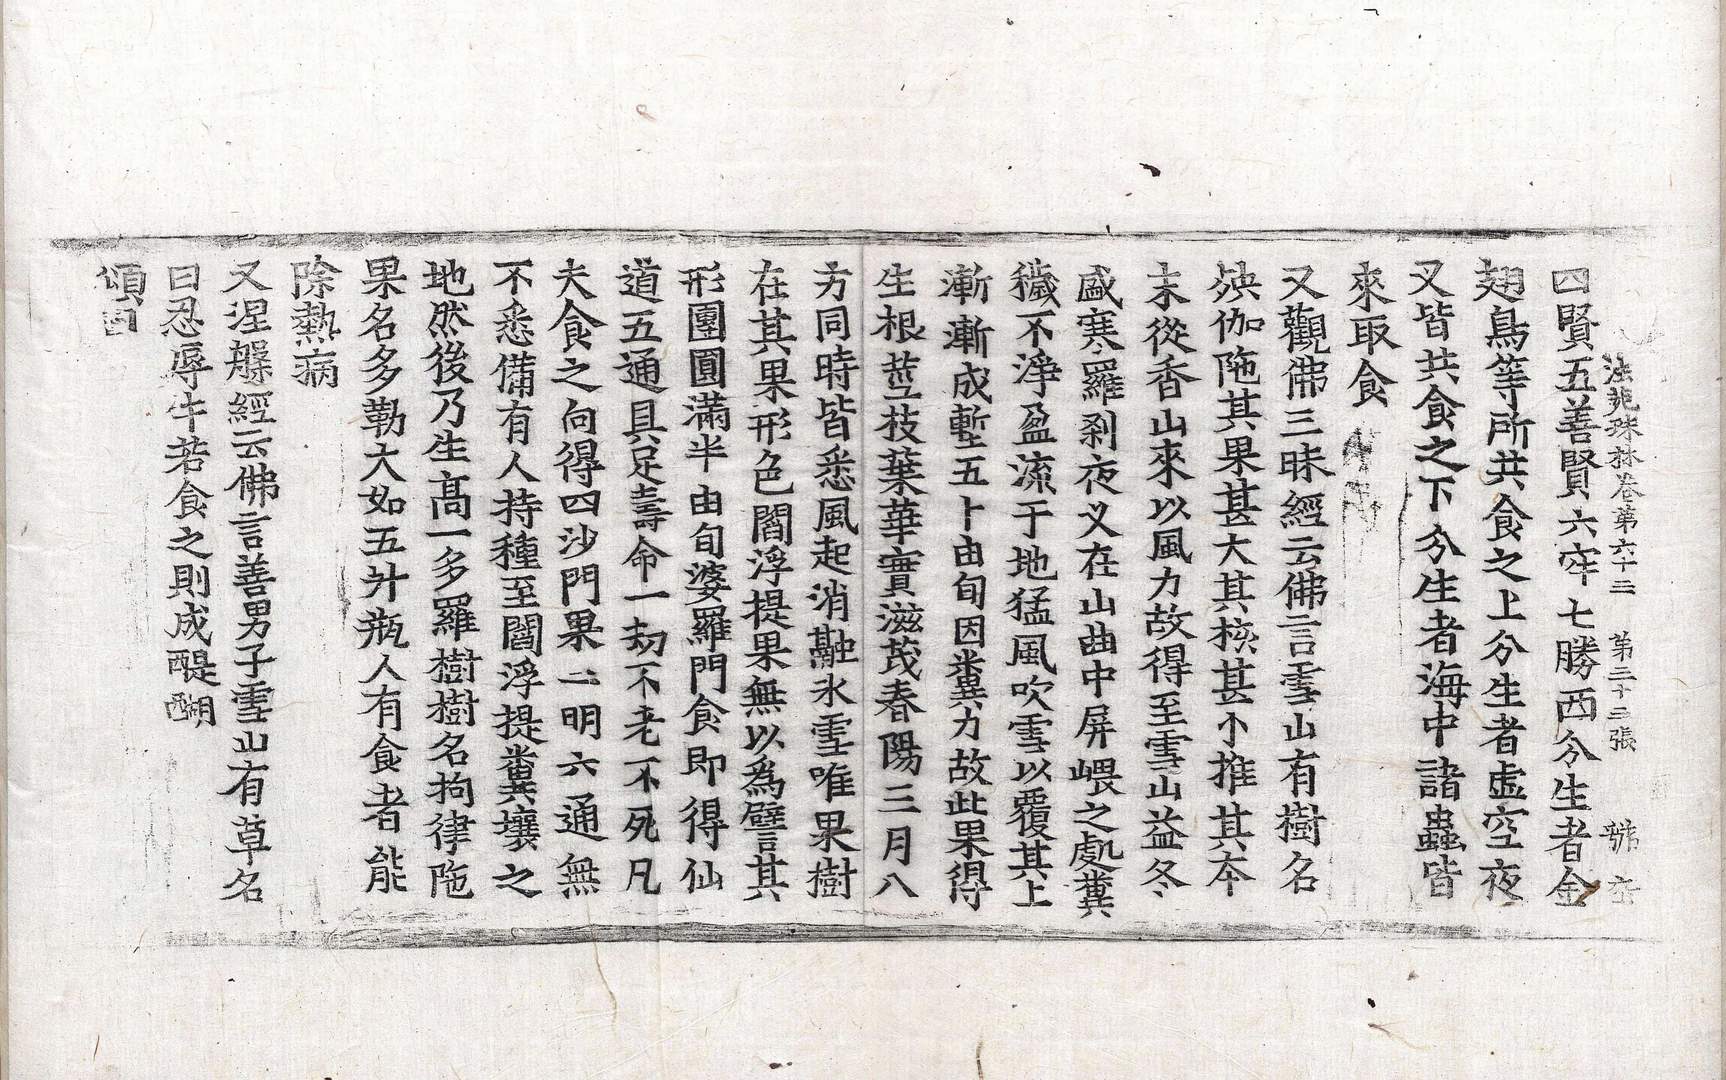 法苑珠林卷第六十三 第二十二張 號 六
四賢五善賢六牢七勝西分生者金
翅鳥等所共食之上分生者虛空夜
叉皆共食之下分生者海中諸蟲皆
來取食
又觀佛三昧經云佛言雪山有樹名
殃伽陁其果甚大其核甚小推其本
末從香山來以風力故得至雪山益冬
盛寒羅刹夜叉在山曲中屏㟪之處糞
穢不淨盈流于地猛風吹雪以覆其上
漸漸成塹五十由旬因糞力故此果得
生根莖枝葉華實滋茂春陽三月八
方同時皆悉風起消融氷雪唯果樹
在其果形色閻浮提果無以爲譬其
形團圓滿半由旬婆羅門食即得仙
道五通具足壽命一劫不老不死凡
夫食之向得四沙門果三明六通無
不悉備有人持種至閻浮提糞壤之
地然後乃生高一多羅樹樹名拘律陁
果名多勒大如五升瓶人有食者能
除熱病
又涅槃經云佛言善男子雪山有草名
曰忍辱牛若食之則成醍醐
頌曰